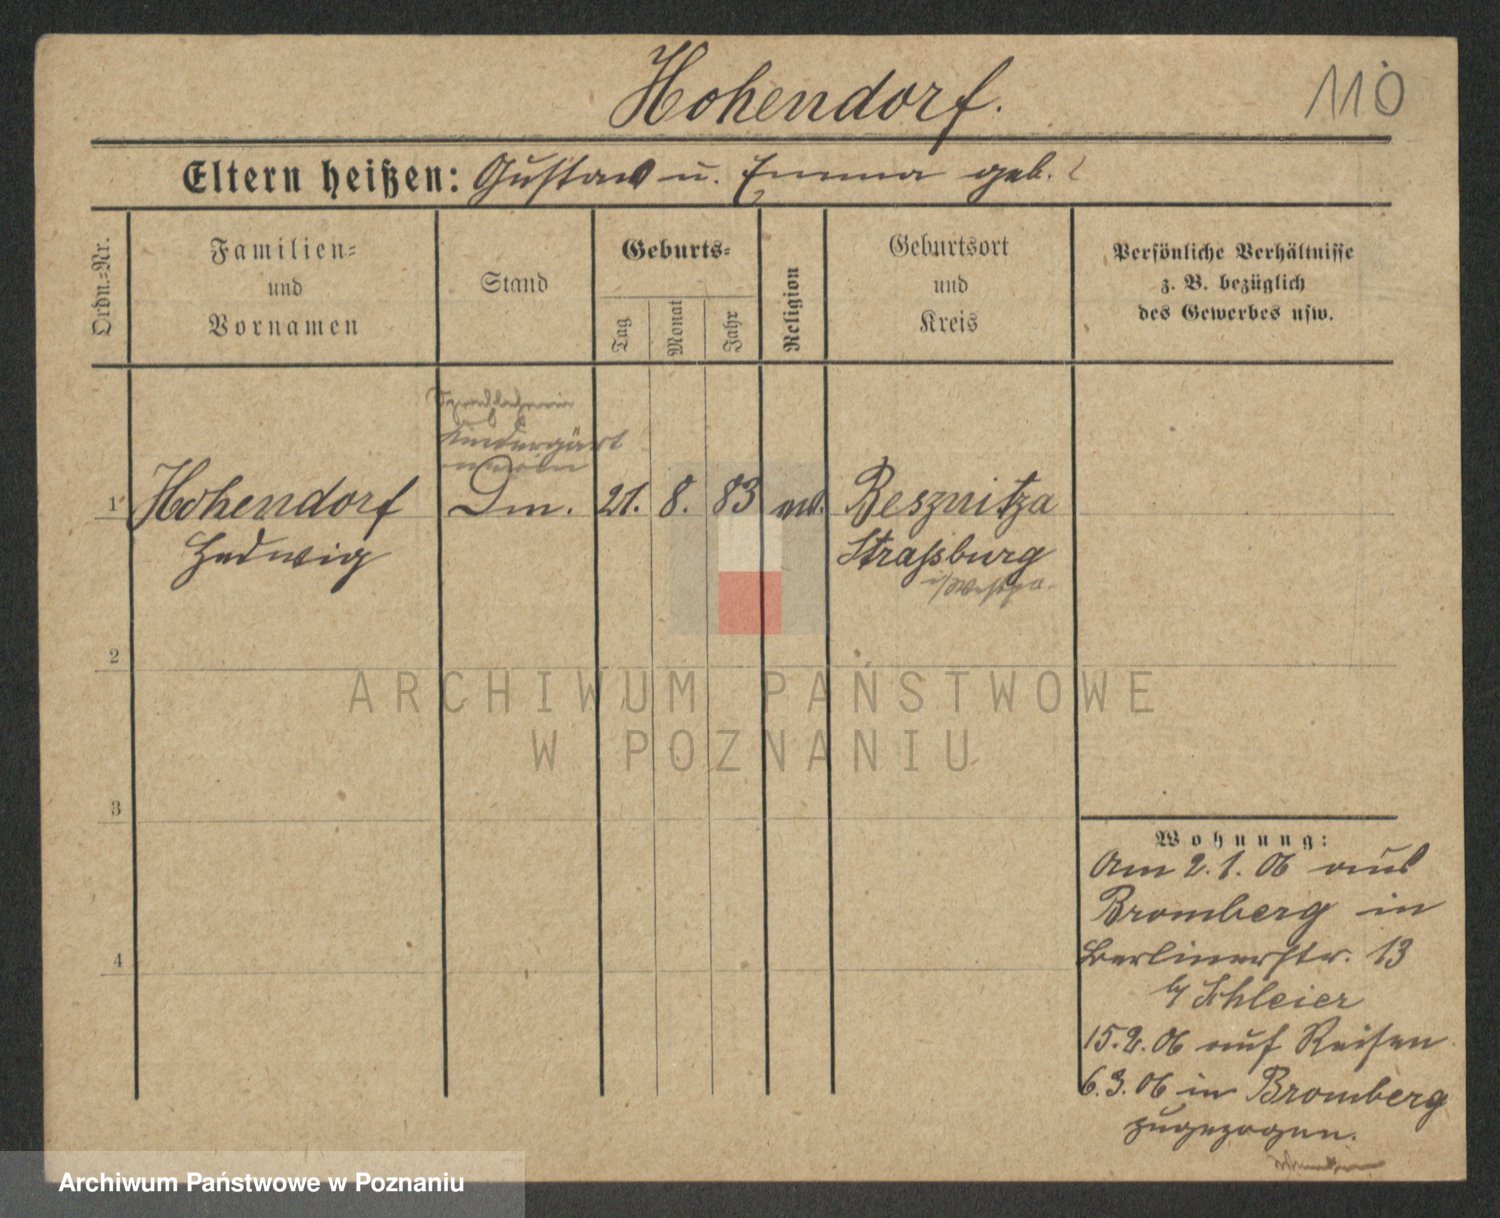 Hohendorf.
110
Eltern heißen: Gustav u. Emma geb. ?
Ordn.=Nr.
Familien=
und
Vornamen
Stand
Geburts=
Tag
Monat
Jahr
Religion
Geburtsort
und
Kreis
Persönliche Verhältnisse
z. B. bezüglich
des Gewerbes usw.
Sprachlehrerin
Kindergärt
nerin
1 Hohendorf Dm. 21. 8. 83 ev. Besznitza
Hedwig Straßburg
i/Westpr.
2
3
4
ARCHIWUM PAŃSTWOWE
W POZNANIU
Wohnung:
Am 2.1.06 aus
Bromberg in
Berlinerstr. 13
b/ Schleier
15.2.06 auf Reisen
6.3.06 in Bromberg
zugezogen.
Archiwum Państwowe w Poznaniu